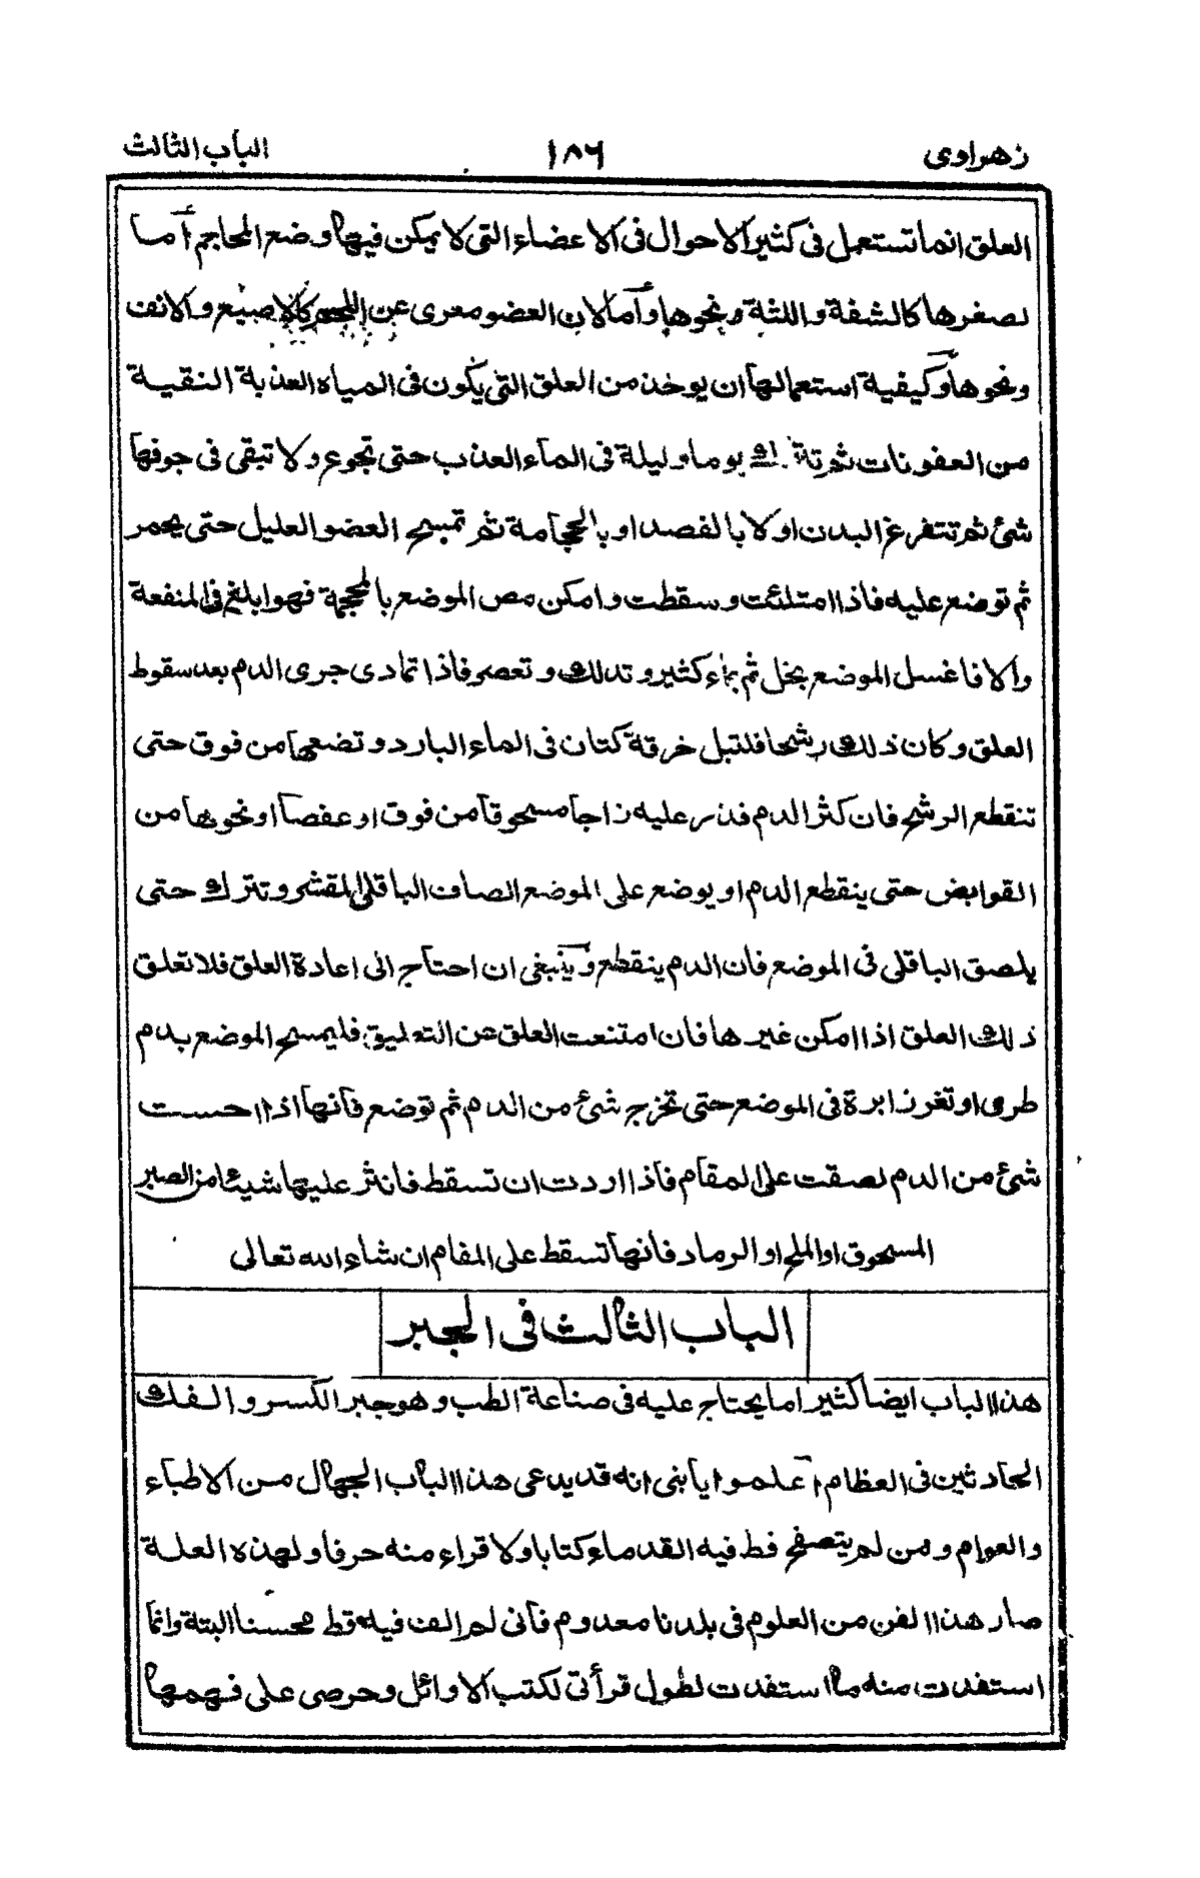 زهراوى ١٨٦ الباب الثالث
العلق انما تستعمل فى كثير الاحوال فى الاعضاء التى لا يمكن فيها وضع المحاجم أما
لصغرها كالشفة واللثة ونحوها وأما لان العضو معرى عن اللحم كالاصبع والانف
ونحوها وكيفية استعمالها ان يوخذ من العلق التى يكون فى المياه العذبة النقية
من العفونات ثم تترك يوما وليلة فى الماء العذب حتى تجوع ولا تبقى فى جوفها
شئ ثم تتفرغ البدن اولا بالفصد او بالحجامة ثم تمسح العضو العليل حتى يحمر
ثم توضع عليه فاذا امتلئت وسقطت وامكن مص الموضع بالمحجمة فهو ابلغ فى المنفعة
والا فاغسل الموضع بخل ثم بماء كثير وتدلك وتعصر فاذا تمادى جرى الدم بعد سقوط
العلق وكان ذلك رشحا فلتبل خرقة كتان فى الماء البارد وتضعها من فوق حتى
تنقطع الرشح فان كثر الدم فذر عليه زاجا مسحوقا من فوق او عفصا او نحوها من
القوابض حتى ينقطع الدم او يوضع على الموضع الصاف الباقلى المقشر وتترك حتى
يلصق الباقلى فى الموضع فان الدم ينقطع وينبغى ان احتاج الى اعادة العلق فلا تعلق
ذلك العلق اذا امكن غيرها فان امتنعت العلق عن التعليق فليمسح الموضع بدم
طرى او تغرز ابرة فى الموضع حتى تخرج شئ من الدم ثم توضع فانها اذا احست
شئ من الدم لصقت على المقام فاذا اردت ان تسقط فانثر عليها شيئا من الصبر
المسحوق او الملح او الرماد فانها تسقط على المقام ان شاء الله تعالى
الباب الثالث فى الجبر
هذا الباب ايضا كثيرا ما يحتاج عليه فى صناعة الطب وهو جبر الكسر والفك
الحادثين فى العظام اعلموا يا بنى انه قد يدعى هذا الباب الجهال من الاطباء
والعوام ومن لم يتصفح قط فيه القدماء كتابا ولا قراء منه حرفا ولهذه العلة
صار هذا الفن من العلوم فى بلدنا معدوم فانى لم الف فيه قط محسنا البتة وانما
استفدت منه ما استفدت لطول قرأتى لكتب الاوائل وحرصى على فهمها